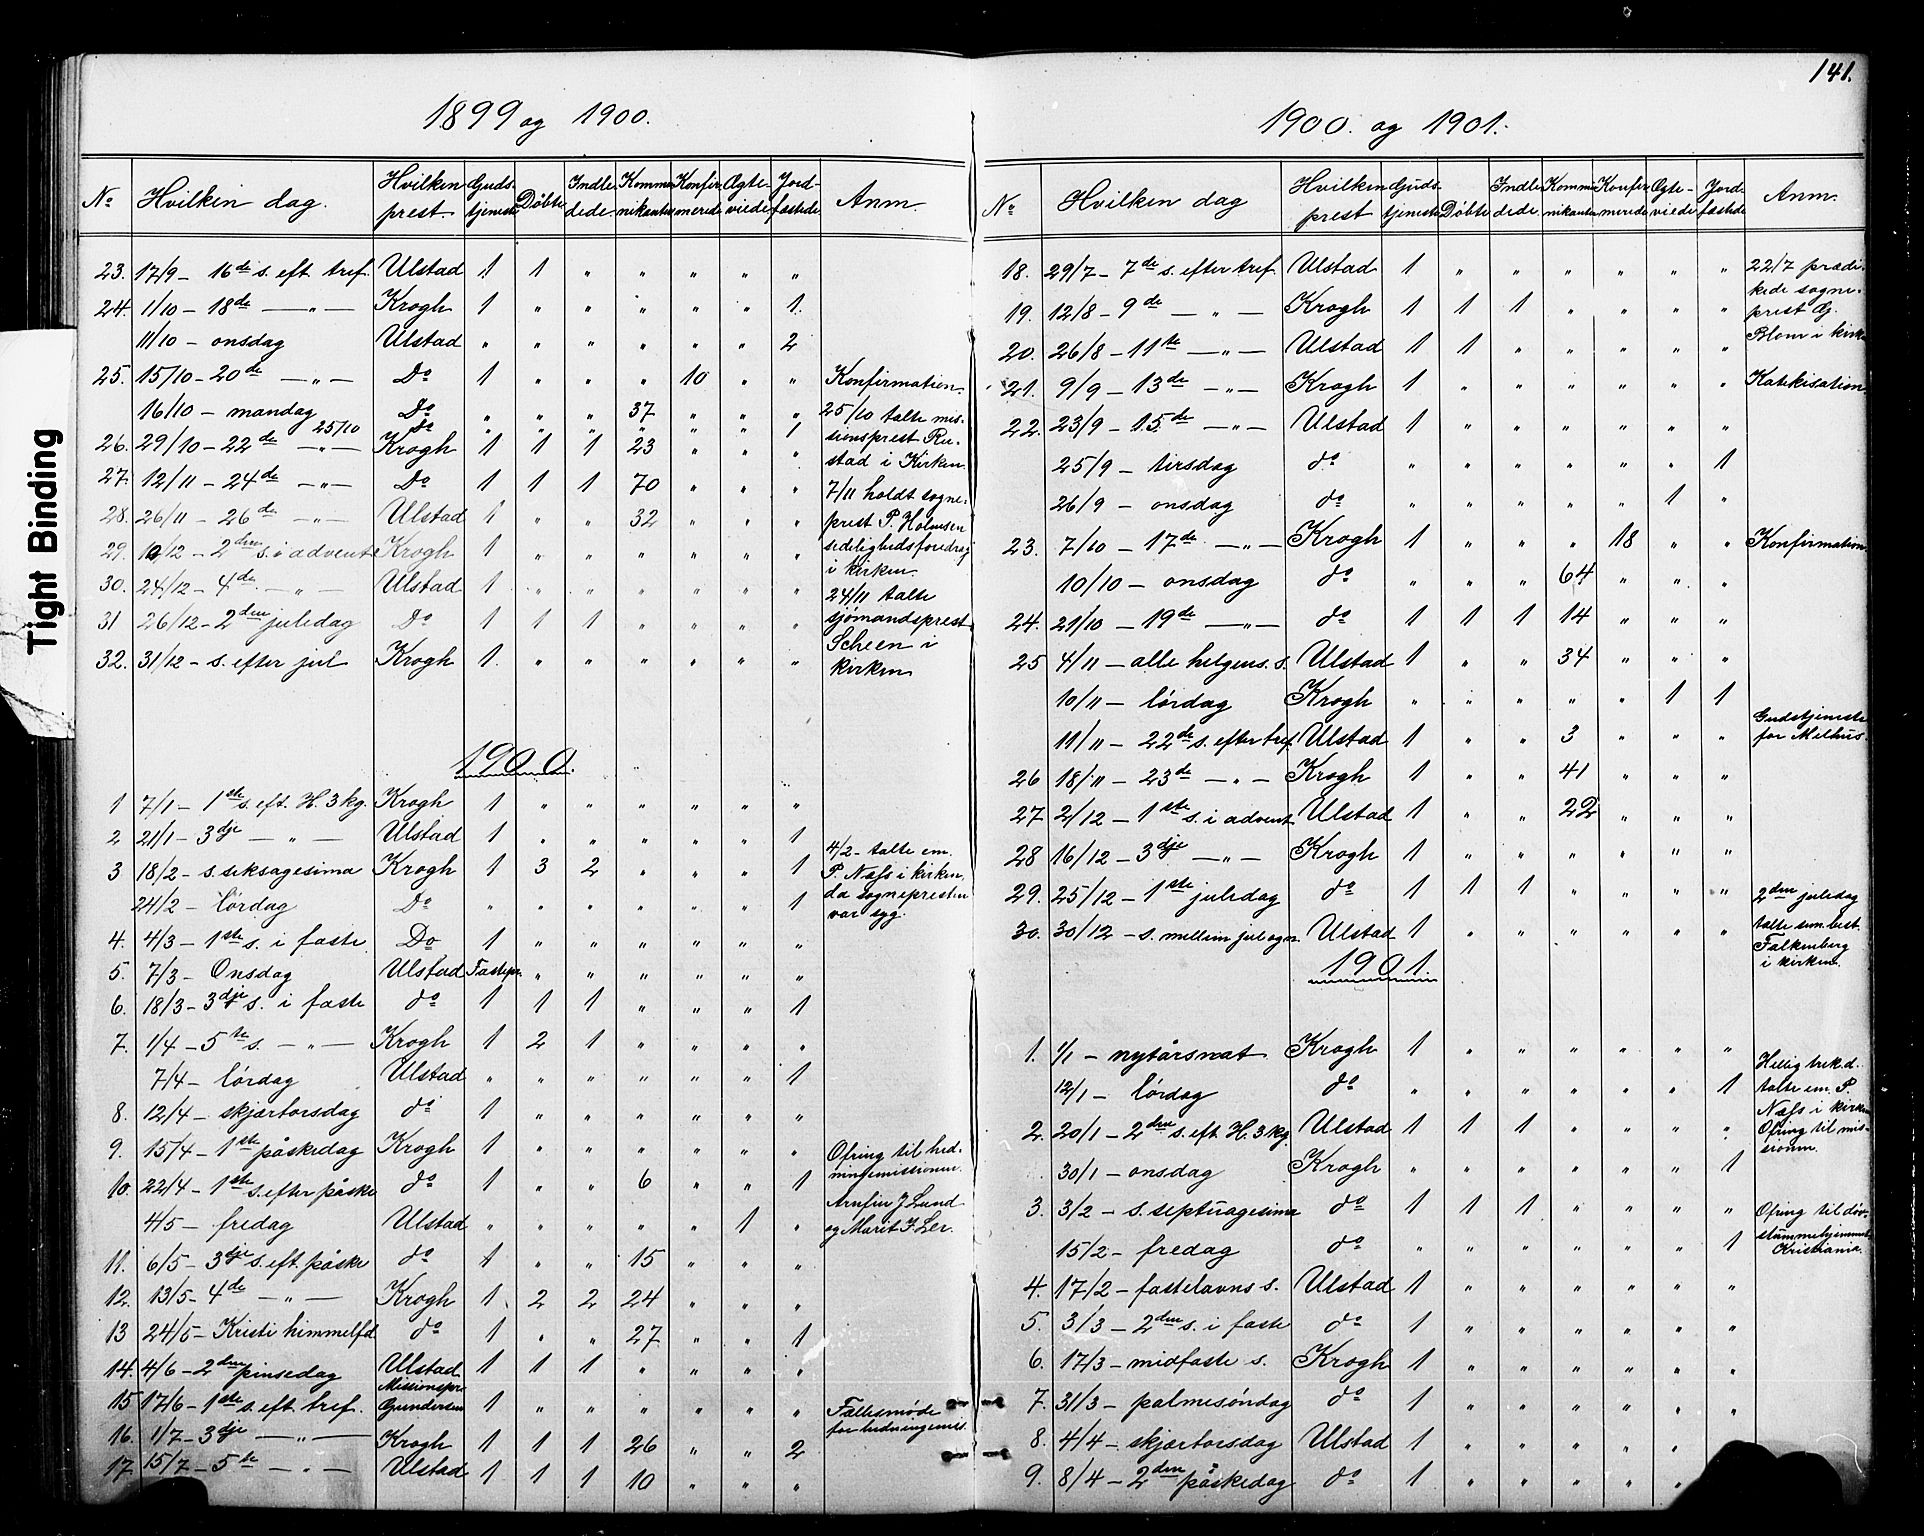 141.
Tight Binding
1899 og 1900.
No Hvilken dag. Hvilken prest. Gudstjeneste Døbte Indledede. Kommunikanter Konfirmerede Ægteviede Jordfæstede Anm.
23. 17/9 – 16de s. eft. tref. Ulstad 1 1 " " " " "
24. 1/10 – 18de — " — Krogh 1 " " " " " 1.
11/10 – onsdag Ulstad " " " " " " 2
25. 15/10 – 20de — " — Do 1 " " " 10 " " Konfirmation.
16/10 – mandag Do " " " 37 " " " 25/10 talte mis-
25/10 do " " " " " " 1 sionsprest Ru-
26. 29/10 – 22de — " — Krogh 1 1 1 23 " " " stad i Kirken
27. 12/11 – 24de — " — Do 1 1 1 70 " " " 7/11 holdt sogne-
28. 26/11 – 26de — " — Ulstad 1 " " 32 " " " prest P. Holmsen
29. 10/12 – 2den s. i advent Krogh 1 " " " " " " sedelighedsforedrag
i kirken.
30. 24/12 – 4de — " — Ulstad 1 " " " " " " 24/11 talte
31 26/12 – 2den juledag Do 1 1 1 " " " " sjømandsprest
32. 31/12 – s. efter jul Krogh 1. " " " " " " Scheen i
kirken
1900.
1 7/1 – 1ste s. eft. H. 3 kg. Krogh 1 " " " " " "
2 21/1 – 3dje — " — Ulstad 1 " " " " " 1
4/2 – talte em.
3 18/2 – s. seksagesima Krogh 1 3 2 " " " 1 P. Næss i kirken,
24/2 – lørdag Do " " " " " " 1 da sognepresten
var syg.
4. 4/3 – 1ste s. i faste Do 1 " " " " " "
5. 7/3 – Onsdag Ulstad Fastepr. " " " " " "
6. 18/3 – 3dje s. i faste do 1 1 1 " " " 1
7. 1/4 – 5te s. — " — Krogh 1 2 1 " " " "
7/4 – lørdag Ulstad " " " " " " 1
8. 12/4 – skjærtorsdag do 1 " " " " " "
9. 15/4 – 1ste påskedag Krogh 1 " " " " " " Ofring til hed-
ningemissionen.
10. 22/4 – 1ste s. efter påske do 1 " " 6 " " 1
Arnfin J. Lund
4/5 – fredag Ulstad " " " " " 1 " og Marit J. Ler.
11. 6/5 – 3dje s. eft. påske do 1 " " 15 " " "
12. 13/5 – 4de — " — Krogh 1 2 2 24 " " "
13 24/5 – Kristi himmelfd do 1 " " 27 " " 1
14. 4/6 – 2den pinsedag Ulstad 1 1 1 " " " "
15 17/6 – 1ste s. eft. tref. Missionspr. Gundersen 1 " " " " " " Fællesmøde
for hedningemis.
16. 1/7 – 3dje — " — Krogh 1 1 1 26 " " 2
17. 15/7 – 5te — " — Ulstad 1 1 1 10 " " "
1900. og 1901.
No Hvilken dag Hvilken prest Gudstjeneste Døbte Indledede. Kommunikanter Konfirmerede Ægteviede Jordfæstede Anm.
18. 29/7 – 7de s. efter tref. Ulstad 1 " " " " " " 22/7 prædi-
kede sogne-
19. 12/8 – 9de — " — Krogh 1 1 1 " " " " prest G.
20. 26/8 – 11te — " — Ulstad 1 1 " " " " " Blom i kirk.
21. 9/9 – 13de — " — Krogh 1 " " " " " " Katekisation
22. 23/9 – 15de — " — Ulstad 1 " " " " " "
25/9 – tirsdag do " " " " " " 1
26/9 – onsdag do " " " " " 1 "
23. 7/10 – 17de — " — Krogh 1 " " " 18 " " Konfirmation
10/10 – onsdag do " " " 64 " " "
24. 21/10 – 19de — " — do 1 1 1 14 " " "
25 4/11 – alle helgens. s. Ulstad 1 " " 34 " " "
10/11 – lørdag Krogh " " " " " 1 1
Gudstjeneste
11/11 – 22de s. efter tref. Ulstad 1 " " 3 " " " for Melhus.
26 18/11 – 23de — " — Krogh 1 " " 41 " " "
27 2/12 – 1ste s. i advent Ulstad 1 " " 22 " " "
28 16/12 – 3dje — " — Krogh 1 " " " " " "
29. 25/12 – 1ste juledag do 1 1 1 " " " " 2den juledag
30. 30/12 – s. mellem jul og n. Ulstad 1 " " " " " " talte sem.best.
Falkenberg
i kirken.
1901.
1. 1/1 – nytårsnat. Krogh 1 " " " " " "
Hellig trek.d.
12/1 – lørdag do " " " " " " 1 talte em. P.
Næss i kirken
2. 20/1 – 2den s. eft. H. 3 kg. Ulstad 1 1 1 " " " " Ofring til mis-
sionen.
30/1 – onsdag Krogh " " " " " " 1
3. 3/2 – s. septuagesima do 1 1 1 " " " " Ofring til døv-
stummehjemmet
15/2 – fredag do " " " " " " 1 Kristiania.
4. 17/2 – fastelavns s. Ulstad 1 " " " " " "
5. 3/3 – 2den s. i faste do 1 " " " " " "
6. 17/3 – midfaste s. Krogh 1 " " " " " "
7. 31/3 – palmesøndag do 1 " " " " " "
8. 4/4 – skjærtorsdag Ulstad 1 " " " " "
9. 8/4 – 2den påskedag do 1 " " " " "